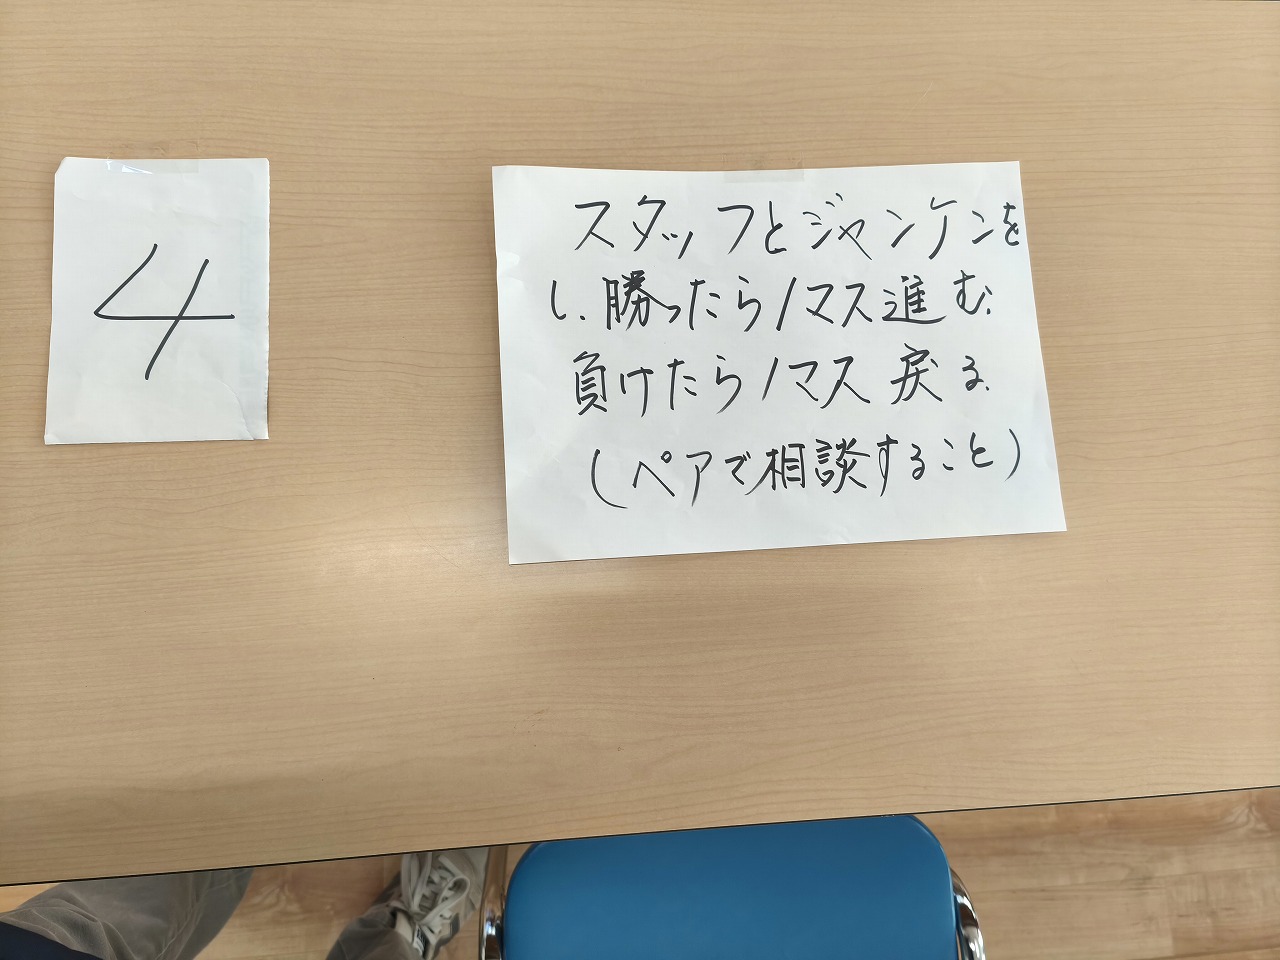 4
スタッフとジャンケンを
し、勝ったら1マス進む、
負けたら1マス戻る、
(ペアで相談すること)